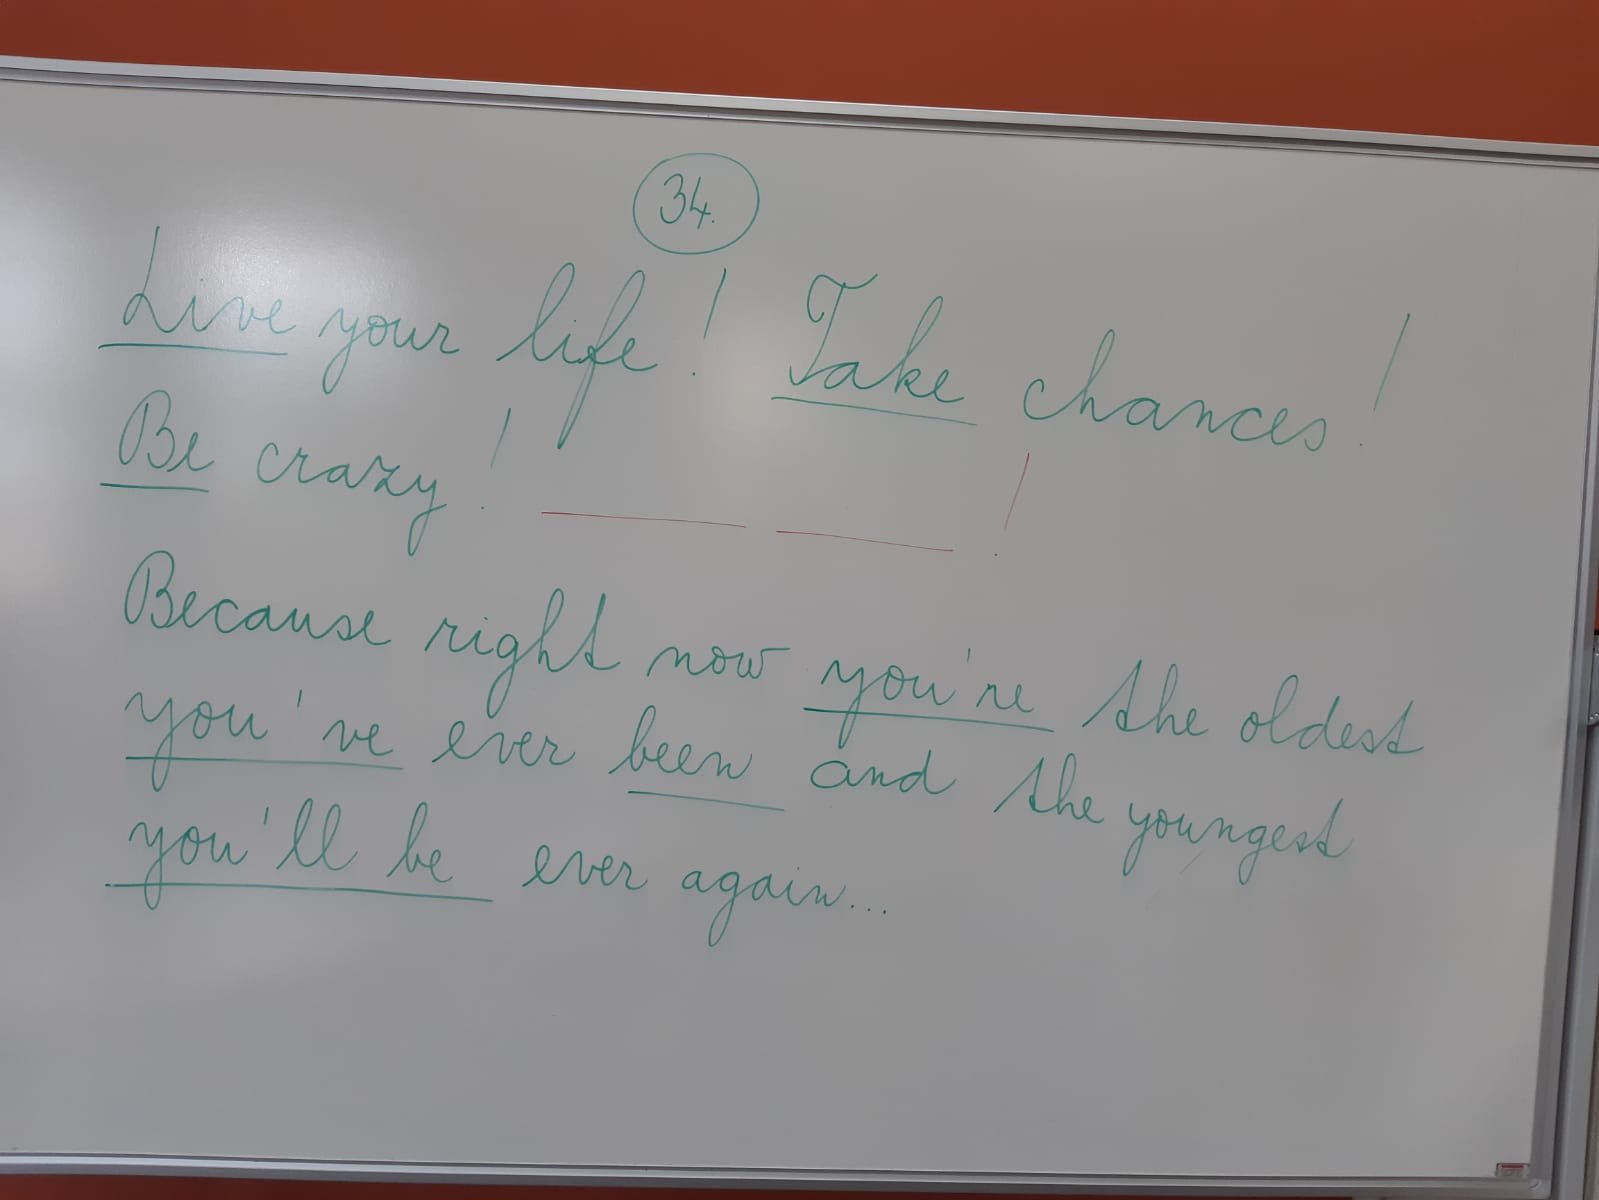 34.
Live your life! Take chances!
Be crazy! ______ ______!
Because right now you're the oldest
you've ever been and the youngest
you'll be ever again...